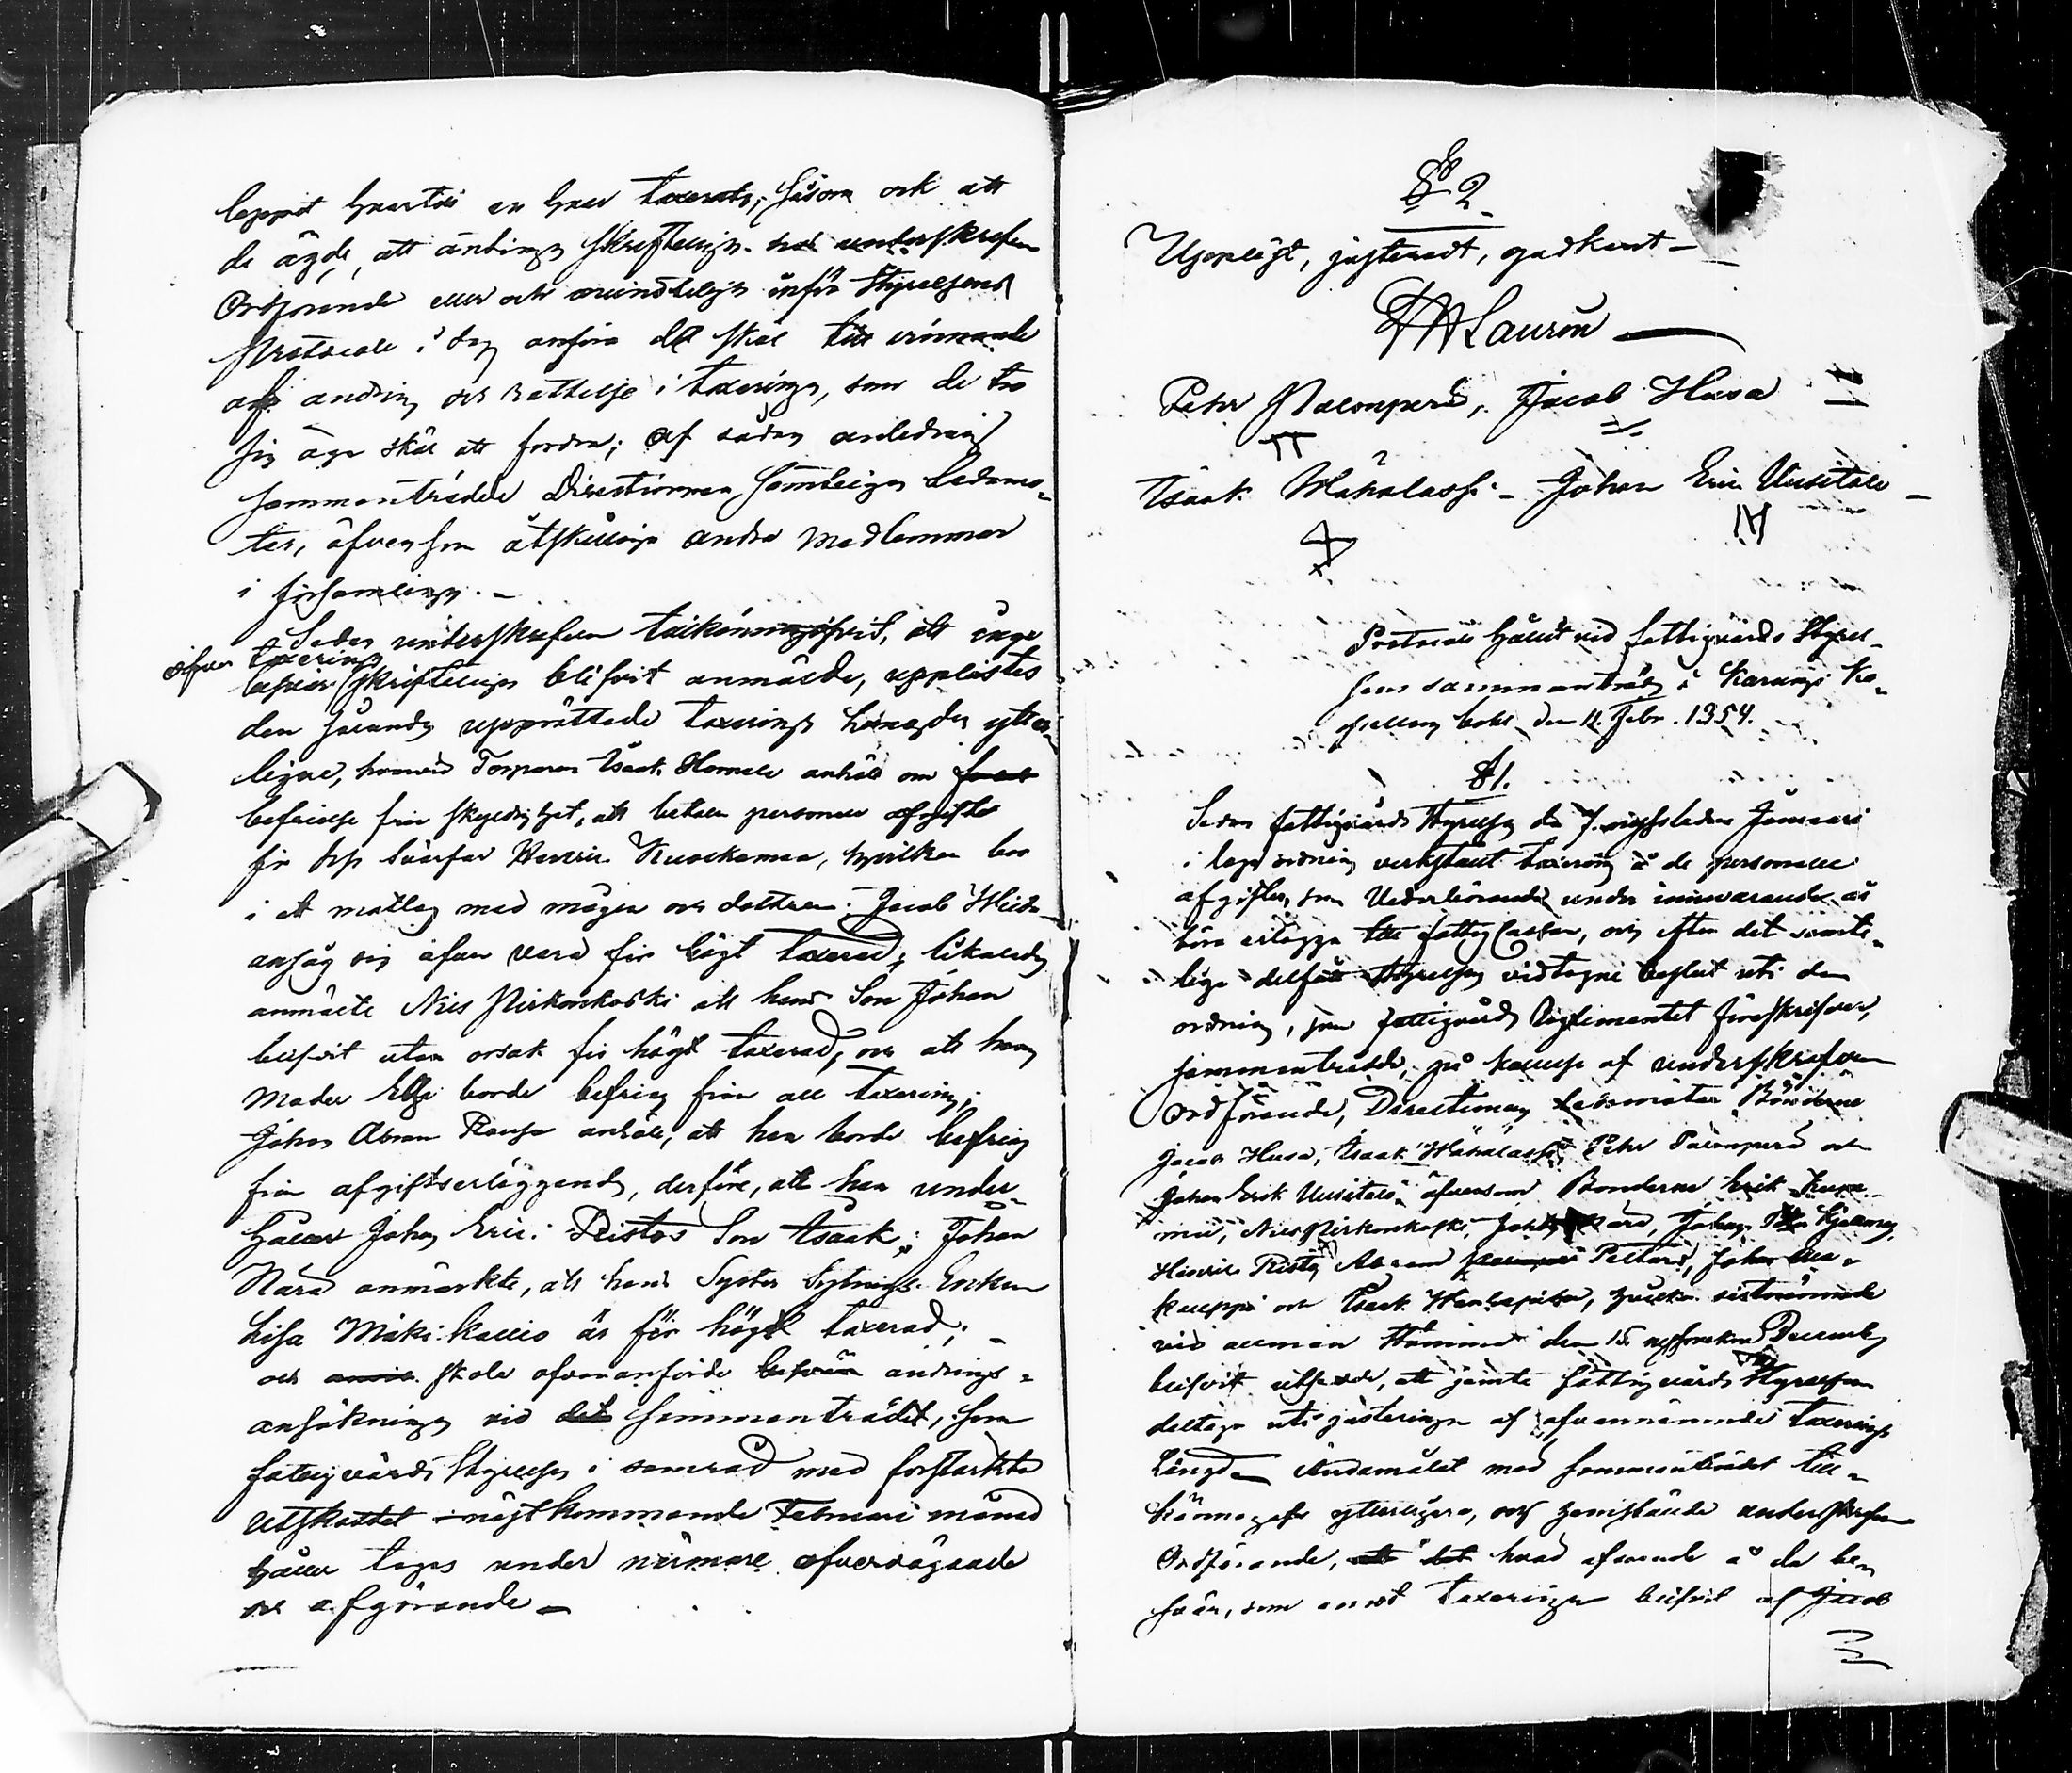 loppet hvartill en hvar taxerats, såsom ock att
de ägde, att antingen skrifteligen hos underskrefven
Ordförande eller ock mundteligen inför Styrelsens
Protocoll i dag anföra de skäl till vinnande
af ändring och rättelse i taxeringen, som de tro
sig äga skäl att fordra; af sådan anledning
sammanträdde Directionens samtelige Ledamö-
ter, äfvensom åtskillige andre medlemmar
i församlingen. -
Sedan underskrefven tillkännagifvit, att inge
öfver taxeringen
besvär skrifteligen blifvit anmälde, upplästes
den sålunda upprättade taxerings längden ytter-
ligare, hvarvid Torparen Isaak anhöll om
befrielse från skyldighet, att betala personele afgifter
för sin Svärfar Henric, hvilken bor
i ett matlag med mågen och dottren. Jacob
ansåg sig äfven vara för högt taxerad; likaledes
anmälte Nils Pirkonkoski att hans Son Johan
blifvit utan orsak för högt taxerad, och att hans
moder Elsa borde befrias från all taxering;
Johan Abram anhöll, att han borde befrias
från afgiftserläggande, derföre, att han under-
håller Johan Eric Ristos Son Isaak; Johan
Närä anmärkte, att hans Syster Sytnings Enkan
Lisa Mäki Kallio är för högt taxerad; -
och skola ofvananförde besvär ändrings-
ansökningar vid det sammanträdet, som
fattigvårds Styrelsen i samråd med förstärkta
Utskottet i nästkommande Februari månad
håller tagas under närmare öfvervägande
och afgörande -
§ 2
Uppläst, justeradt, godkändt -
Laurin
Petter Palonperä, Jacob Husa
Isaak Mähälassi - Johan Eric Uusitalo -
Protocoll hållet vid fattigvårds Styrel-
sens sammanträde i Karungi Ka-
pellans bohl den 11. Febr. 1854.
§ 1.
Sedan fattigvårds Styrelsen den 7. nästledne Januari
i laga ordning verkställt taxering å de personele
afgifter, som Vederbörande under innevarande år
böra erlägga till fattig Cassan, och efter det samte-
lige delfått Styrelsens vidtagne beslut uti den
ordning, som fattigvårds Reglementet föreskrifver,
sammanträdde, på kallelse af underskrefven
Ordförande, Directionens Ledamöter Bönderne
Jacob Husa, Isaak Mähälassi, Petter Palonperä och
Johan Erik Uusitalo äfvensom Bönderne Erik
Nils Pirkonkoski, Johan Närä, Johan
Henric Risto, Abram, Johan
och Isaak, hvilka sistnämnde
vid allmän stämma den 15. nästförvekne December
blifvit utsedde, att jämte fattigvårds Styrelsen
deltaga uti justeringen af ofvannämnde taxerings
längd. Ändamålet med sammanträdet till-
kännagafs ytterligare, och hemställde underskrefven
Ordförande, att det hvad afseende å de be-
svär, som emot taxeringen blifvit af Jacob